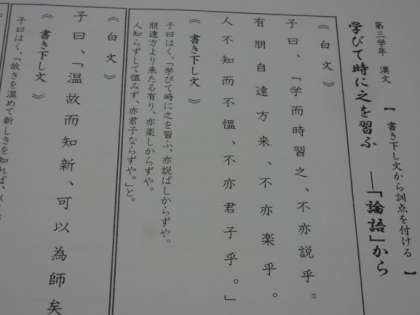 第三学年 漢文 【 書き下し文から訓点を付ける 】
学びて時に之を習ふ ―「論語」から
《 白 文 》
子曰、「学而時習之、不亦説乎。
有朋自遠方来、不亦楽乎。
人不知而不慍、不亦君子乎。」
《 書き下し文 》
子曰はく、「学びて時に之を習ふ、亦説ばしからずや。
朋遠方より来たる有り、亦楽しからずや。
人知らずして慍みず、亦君子ならずや。」と。
《 白 文 》
子曰、「温故而知新、可以為師矣
《 書き下し文 》
子曰はく、「故きを温めて新しきを知れば、